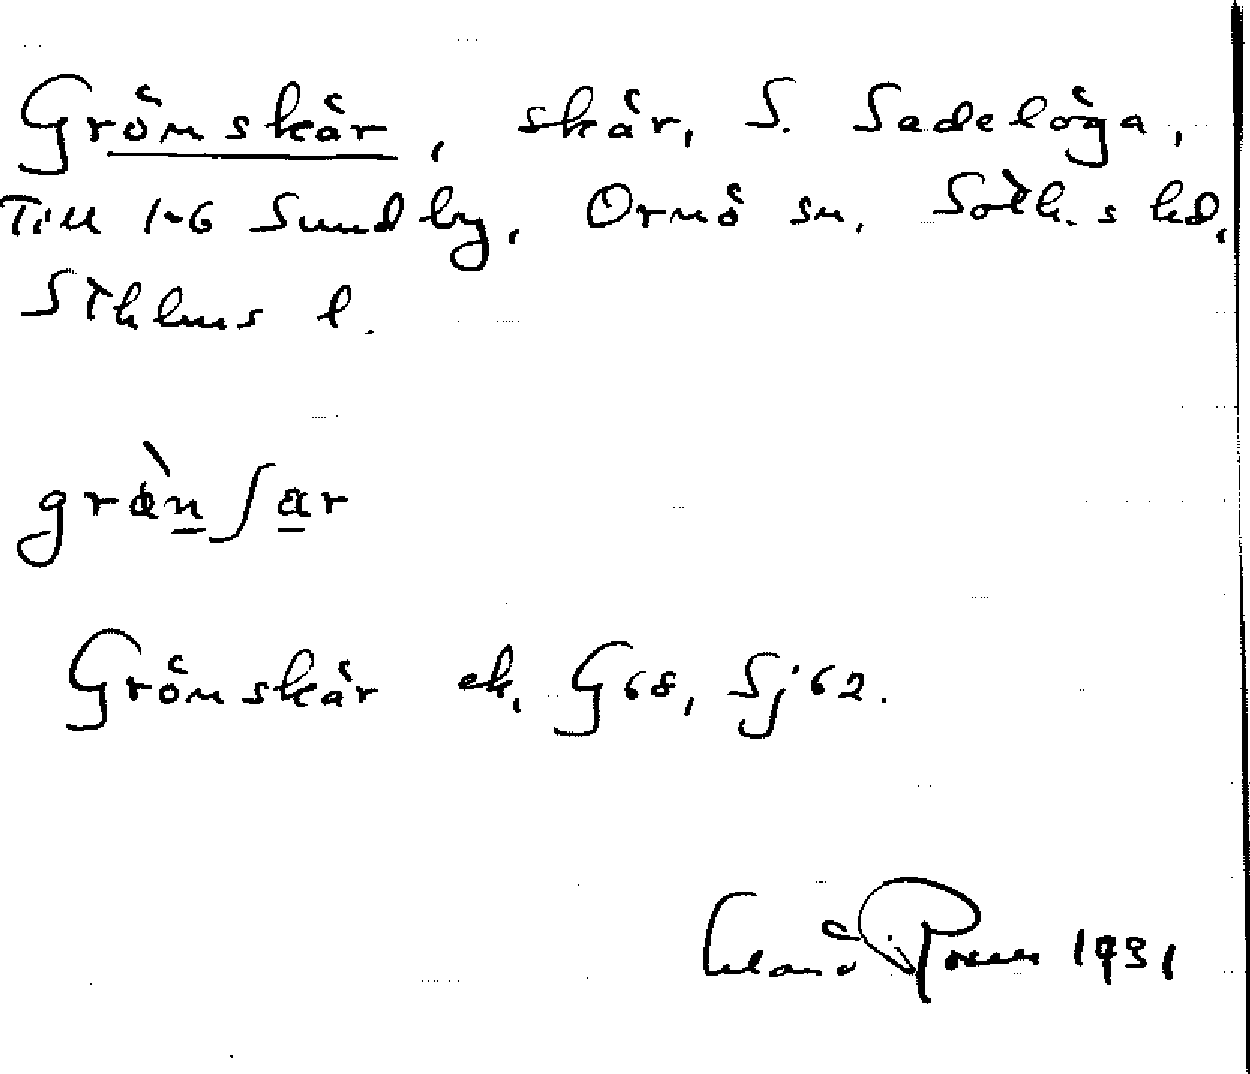 Grönskär, skär, S. Sadelöga,
Till 1-6 Sundby, Ornö sn, Soth.s hd,
Sthlms l.
grȍnʃar
Grönskär ek. G68, Sj 62.
1931